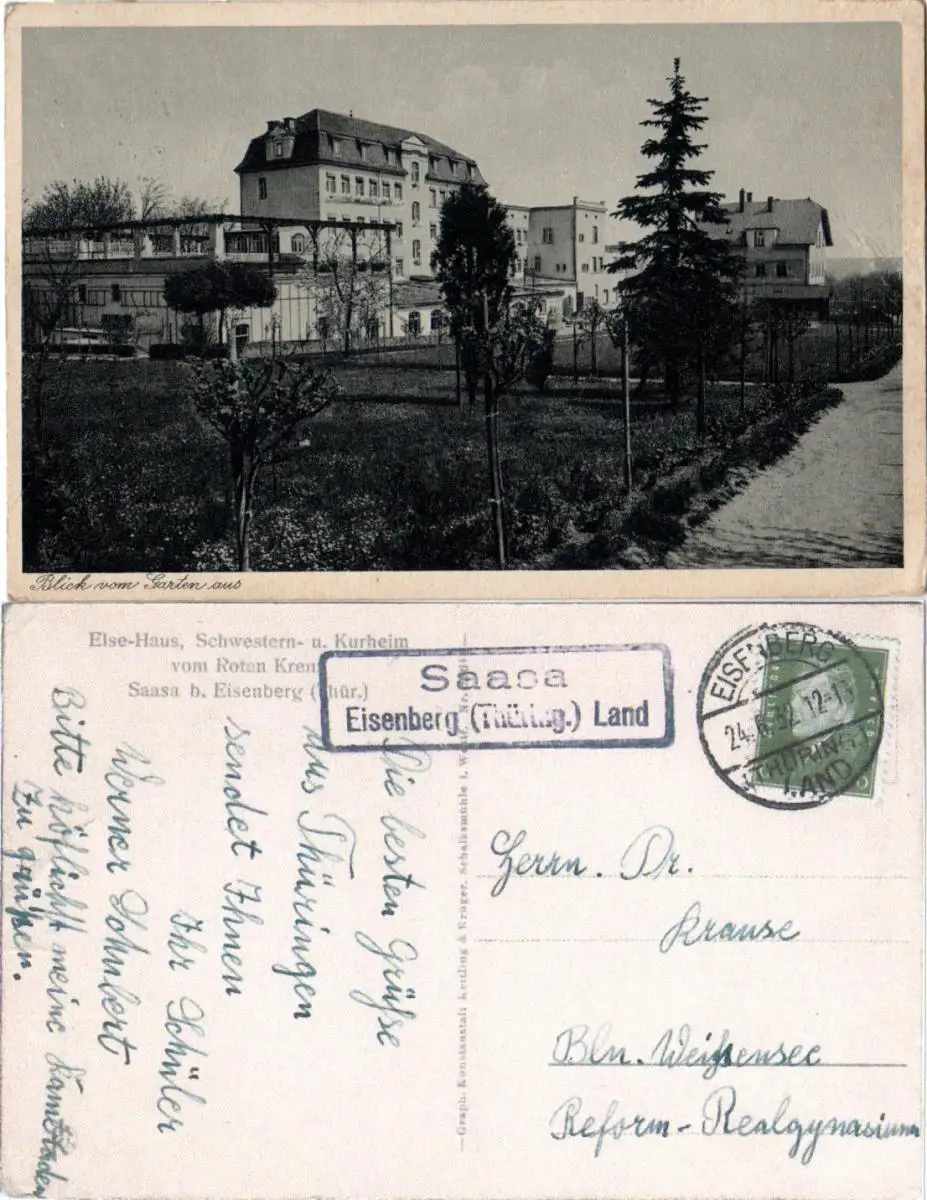 Blick vom Garten aus
Else-Haus, Schwestern- u. Kurheim
vom Roten Kreu
Saasa b. Eisenberg (Thür.)
Saasa
Eisenberg (Thüring.) Land
EISENBERG
24.6.32.12-13
(THÜRING.)
LAND
Die besten Grüße
aus Thüringen
sendet Ihnen
Ihr Schüler
Werner Schubert
Bitte höflichst meine Kameraden
zu grüßen.
Graph. Kunstanstalt Kettling & Krüger, Schalksmühle i. Westf. Nr.
Herrn. Dr.
Krause
Bln. Weißensee
Reform-Realgymnasium